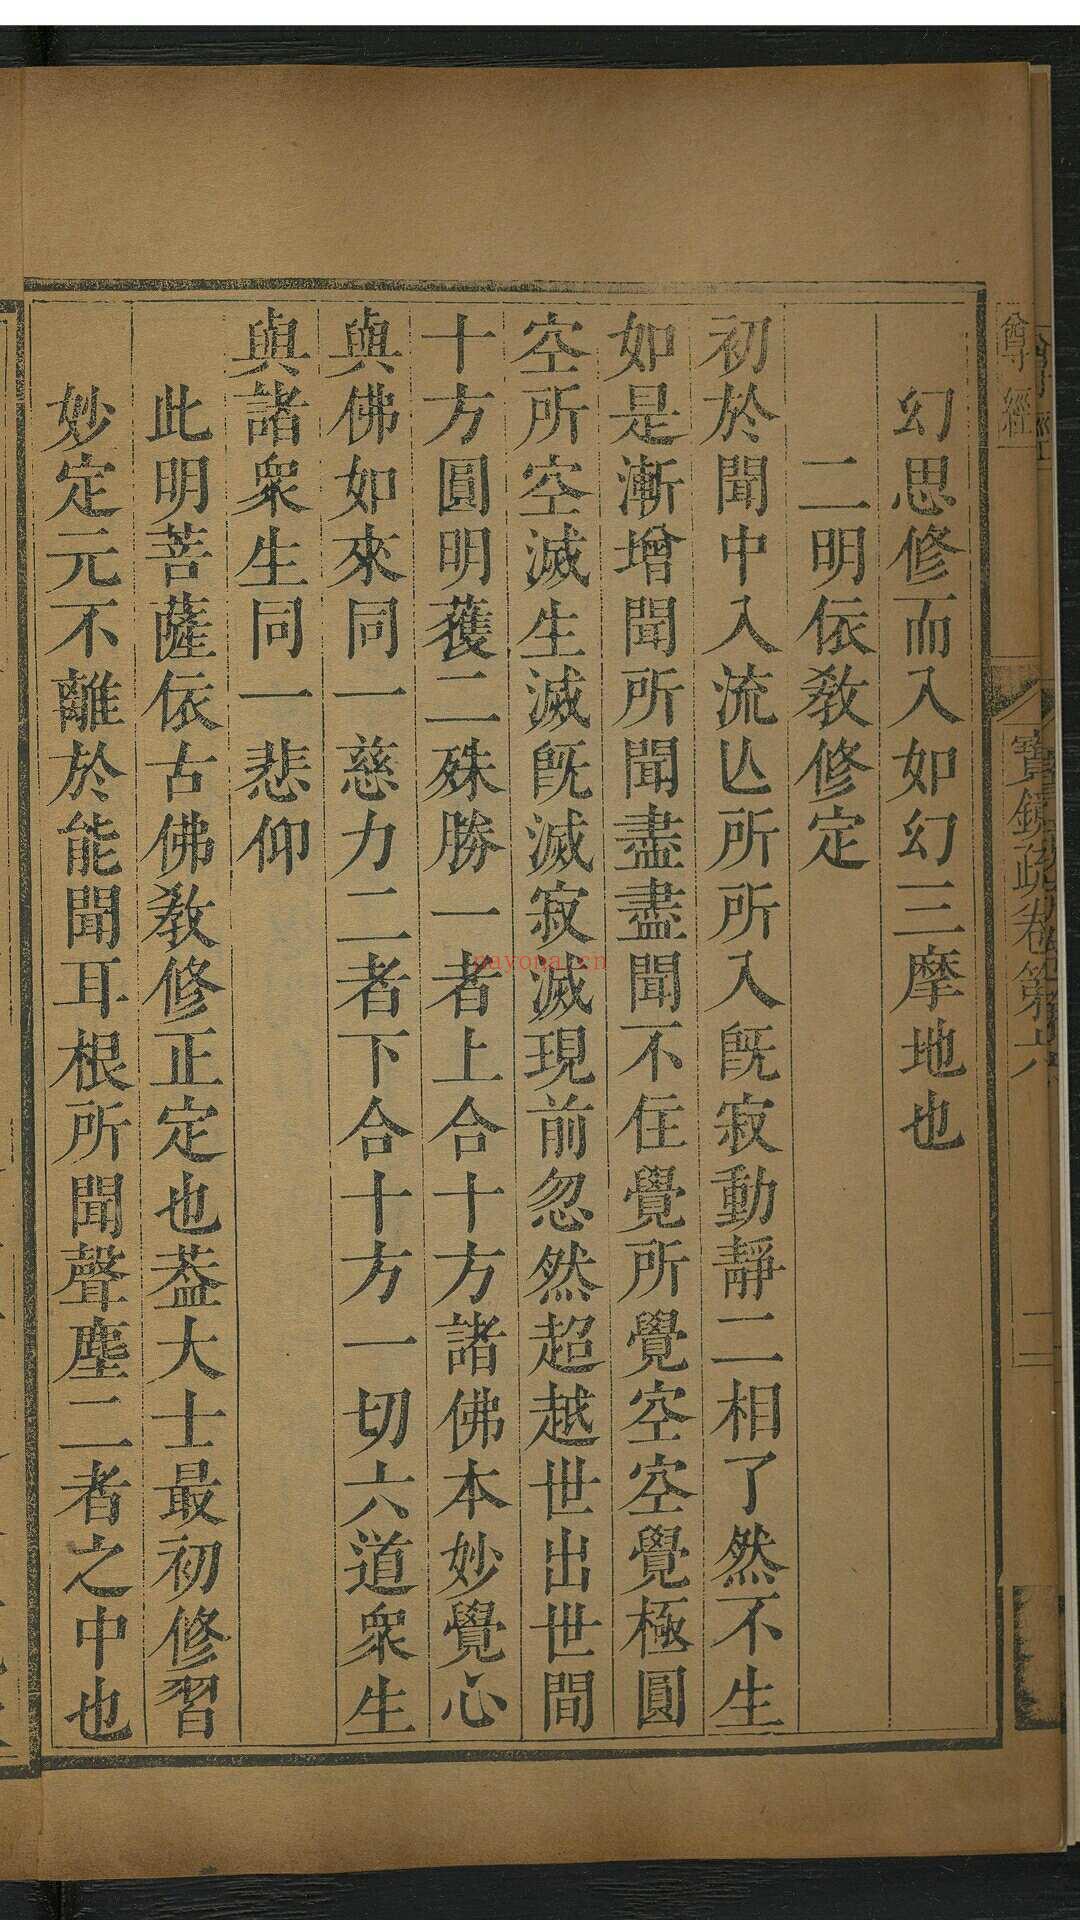 幻思修而入如幻三摩地也
二明依教修定
初於聞中入流亾所所入旣寂動靜二相了然不生
如是漸增聞所聞盡盡聞不住覺所覺空空覺極圓
空所空滅生滅旣滅寂滅現前忽然超越世出世間
十方圓明獲二殊勝一者上合十方諸佛本妙覺心
與佛如來同一慈力二者下合十方一切六道衆生
與諸衆生同一悲仰
此明菩薩依古佛教修正定也葢大士最初修習
妙定元不離於能聞耳根所聞聲塵二者之中也
寶鏡疏卷第六
二